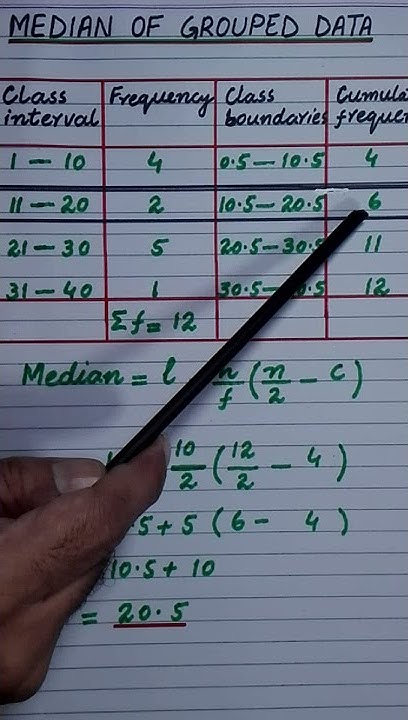 MEDIAN OF GROUPED DATA
Class interval | Frequency | Class boundaries | Cumula frequen
1 — 10 | 4 | 0.5 — 10.5 | 4
11 — 20 | 2 | 10.5 — 20.5 | 6
21 — 30 | 5 | 20.5 — 30.5 | 11
31 — 40 | 1 | 30.5 — .5 | 12
Σf = 12
Median = l h/f (n/2 − c)
10/2 (12/2 − 4)
.5 + 5 (6 − 4)
10.5 + 10
= 20.5